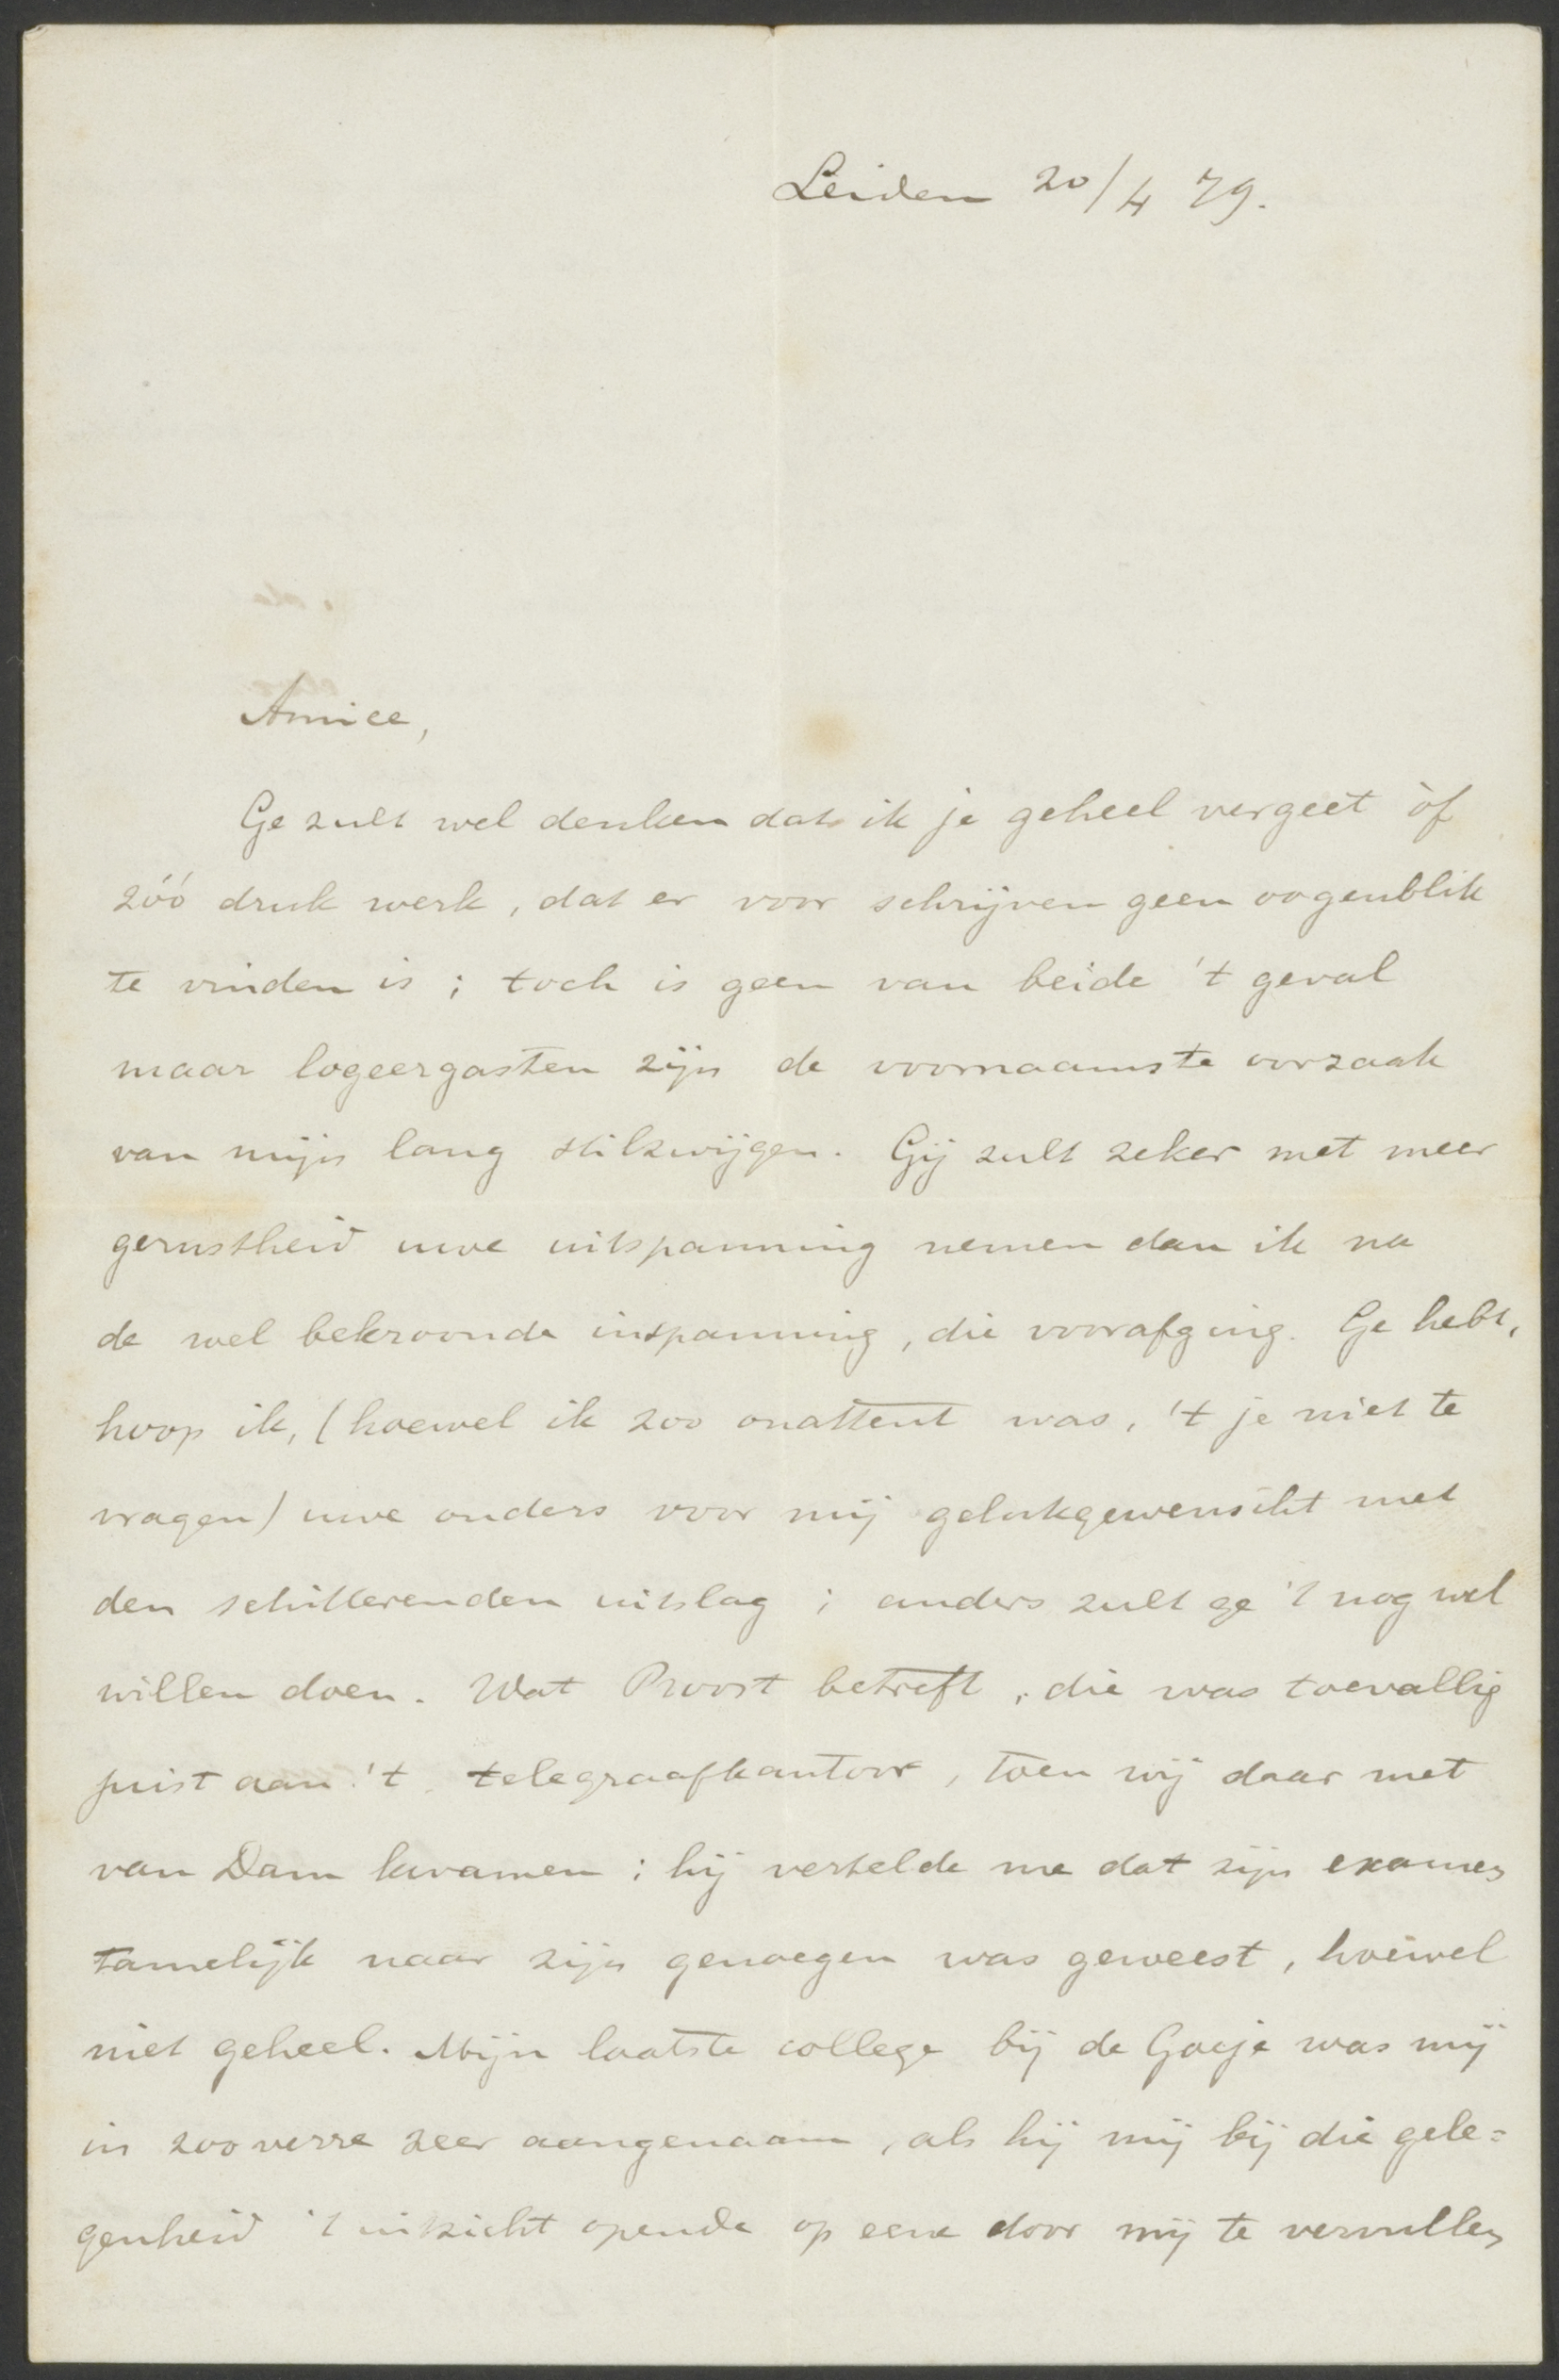 Leiden 20/4 79.
Amice,
Ge zult wel denken dat ik je geheel vergeet òf
zóó druk werk, dat er voor schrijven geen oogenblik
te vinden is; toch is geen van beide 't geval
maar logeergasten zijn de voornaamste oorzaak
van mijn lang stilzwijgen. Gij zult zeker met meer
gerustheid uwe uitspanning nemen dan ik na
de wel bekroonde inspanning, die voorafging. Ge hebt,
hoop ik, (hoewel ik zoo onattent was, 't je niet te
vragen) uwe ouders voor mij gelukgewenscht met
den schitterenden uitslag; anders zult ge 't nog wel
willen doen. Wat Proost betreft, die was toevallig
juist aan 't telegraafkantoor, toen wij daar met
van Dam kwamen; hij vertelde me dat zijn examen
tamelijk naar zijn genoegen was geweest, hoewel
niet geheel. Mijn laatste college bij de Goeje was mij
in zooverre zeer aangenaam, als hij mij bij die gele=
genheid 't uitzicht opende op eene door mij te vervullen